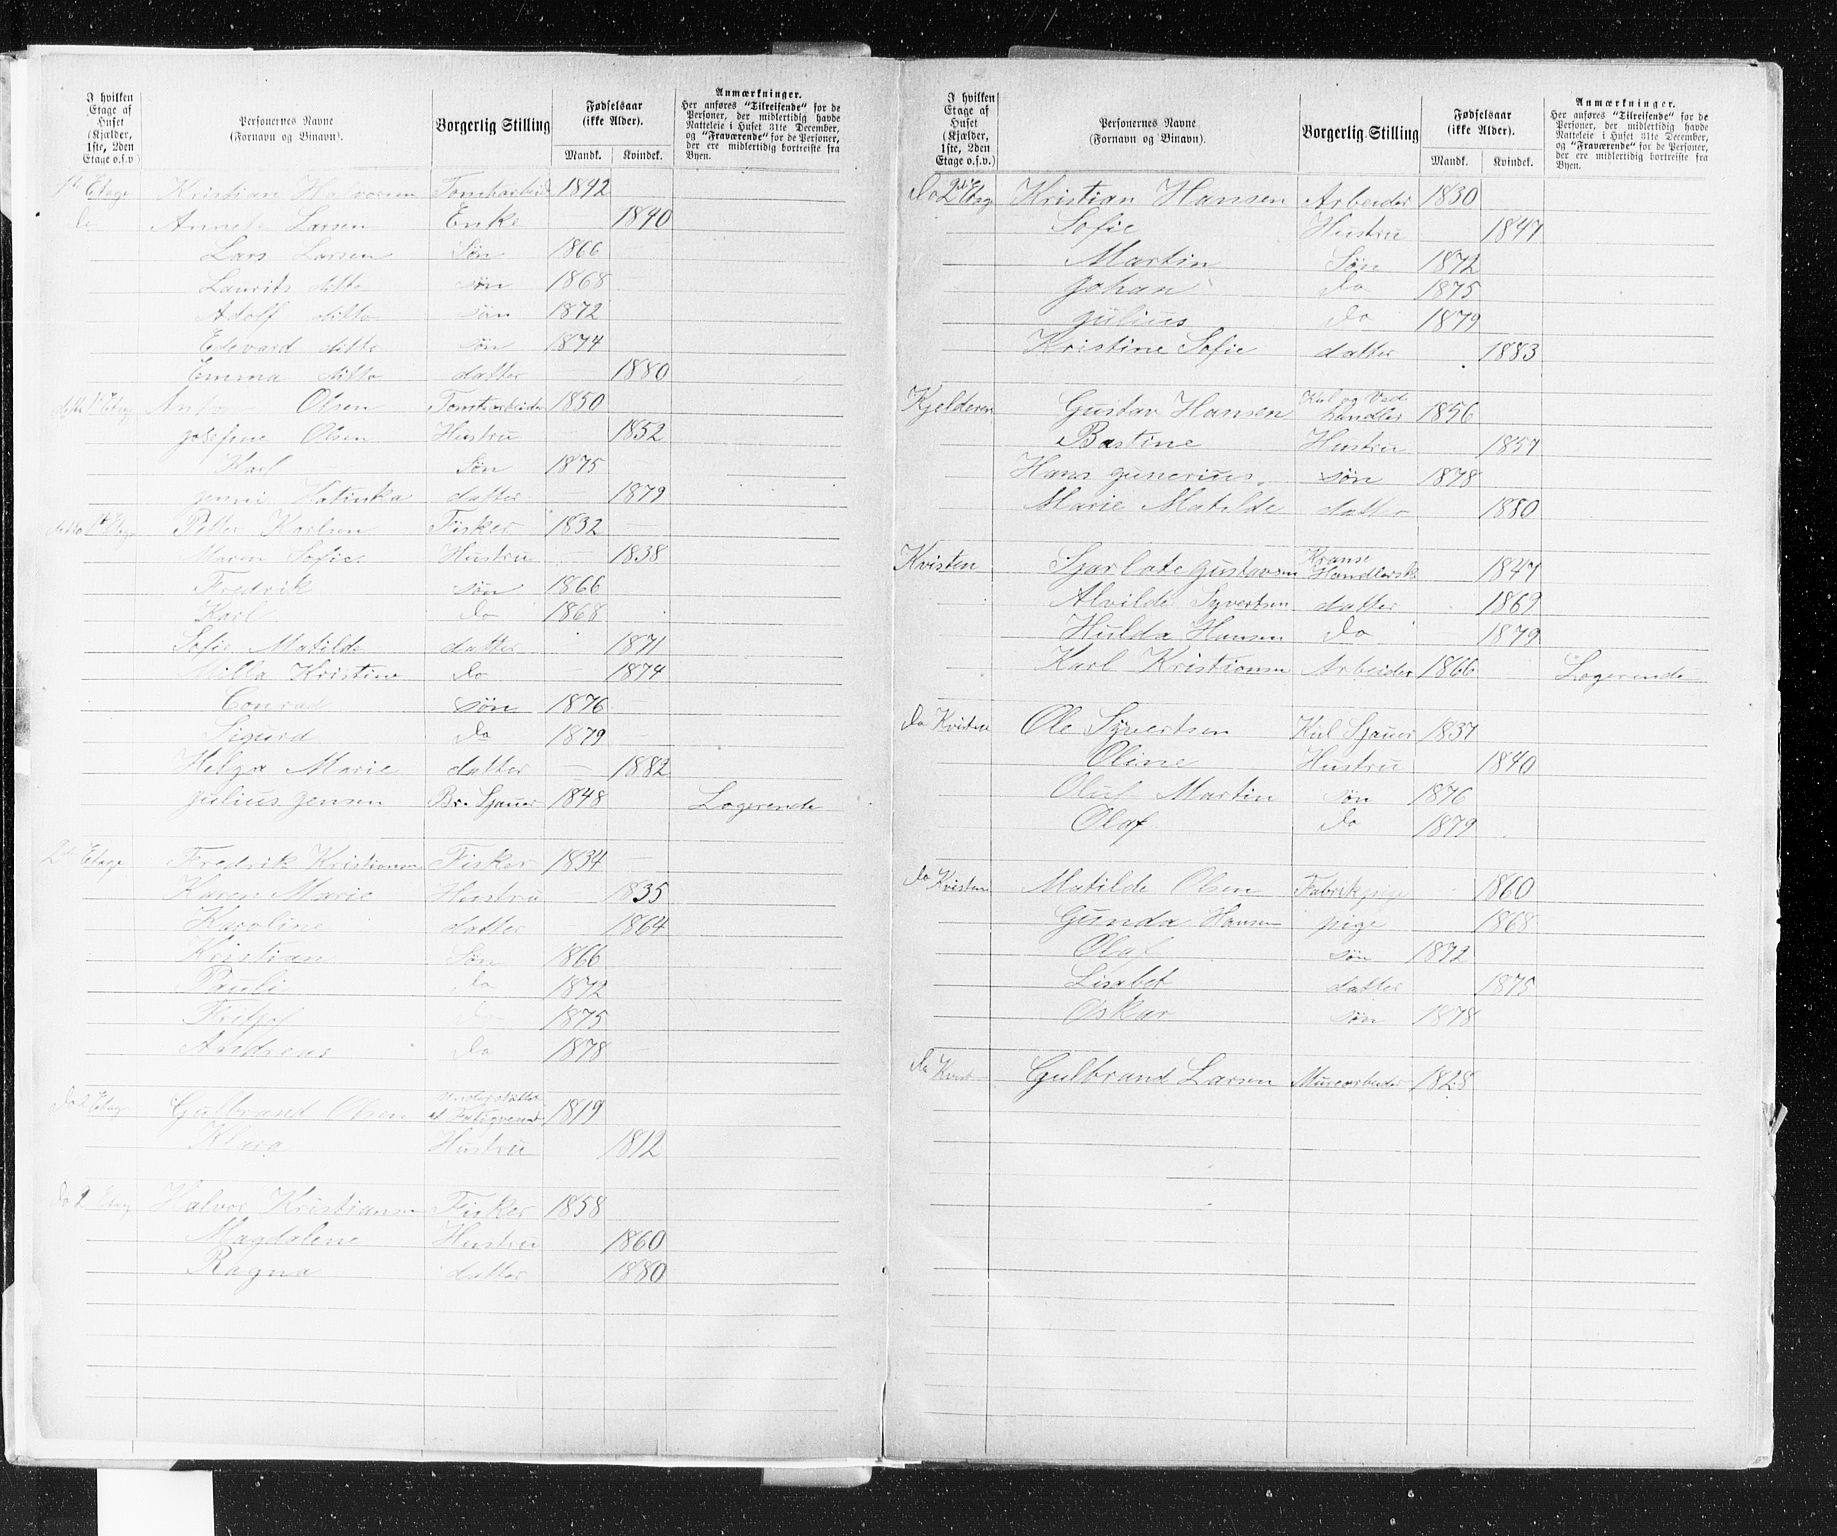 I hvilken Etage af Huset (Kjælder, 1ste, 2den Etage o.s.v.)
Personernes Navne (Fornavn og Binavn).
Borgerlig Stilling
Fødselsaar (ikke Alder).
Mandk. Kvindek.
Anmærkninger.
Her anføres "Tilreisende" for de Personer, der midlertidig havde Natteleie i Huset 31te December, og "Fraværende" for de Personer, der ere midlertidig bortreiste fra Byen.
1ste Etage Kristian Halvorsen Tomtearbeider 1842
do Larsen Enke 1840
Lars Larsen Søn 1866
Laurits ditto søn 1868
Adolf ditto søn 1872
Edevard ditto søn 1874
Emma ditto datter 1880
Olsen Tomtearbeider 1850
Josefine Olsen Hustru 1852
Karl Søn 1875
Jenni Katinka datter 1879
Petter Karlsen Fisker 1832
Maren Sofie Hustru 1838
Fredrik søn 1866
Karl Do 1868
Sofie Matilde datter 1871
Milla Kristine Do 1874
Conrad søn 1876
Sigurd Do 1879
Helga Marie datter 1882
Julius Jensen Br. Sjauer 1848 Logerende
2den Etage Fredrik Kristiansen Fisker 1834
Karen Marie Hustru 1835
Karoline datter 1864
Kristian Søn 1866
Pauli Do 1872
Do 1875
Andreas Do 1878
Do 2 Etag Gulbrand Olsen Understøttes af Fattigvesenet 1819
Klara Hustru 1812
Do 2 Etag Halvor Kristiansen Fisker 1858
Magdalene Hustru 1860
Ragna datter 1880
I hvilken Etage af Huset (Kjælder, 1ste, 2den Etage o.s.v.)
Personernes Navne (Fornavn og Binavn).
Borgerlig Stilling
Fødselsaar (ikke Alder).
Mandk. Kvindek.
Anmærkninger.
Her anføres "Tilreisende" for de Personer, der midlertidig havde Natteleie i Huset 31te December, og "Fraværende" for de Personer, der ere midlertidig bortreiste fra Byen.
Do 2 Etag Kristian Hansen Arbeider 1830
Sofie Hustru 1847
Martin Søn 1872
Johan Do 1875
Julius Do 1879
Kristine Sofie datter 1883
Kjelderen Gustav Hansen Kul og Ved handler 1856
Bastine Hustru 1857
Hans Gunerius søn 1878
Marie Matilde datter 1880
Kvisten Sjarlote Gustavsen Kranse Handlersk 1847
Alvilde Syvertsen datter 1869
Hulda Hansen Do 1879
Karl Kristiansen Arbeider 1866 Logerende
Do Kvisten Ole Syvertsen Kul Sjauer 1837
Oline Hustru 1840
Oluf Martin søn 1876
Olaf Do 1879
Do Kvisten Matilde Olsen Fabrikpige 1860
Gunda Hansen pige 1868
Olaf søn 1872
Lisabet datter 1875
Oskar søn 1878
Do Kvist Gulbrand Larsen Murearbeider 1828